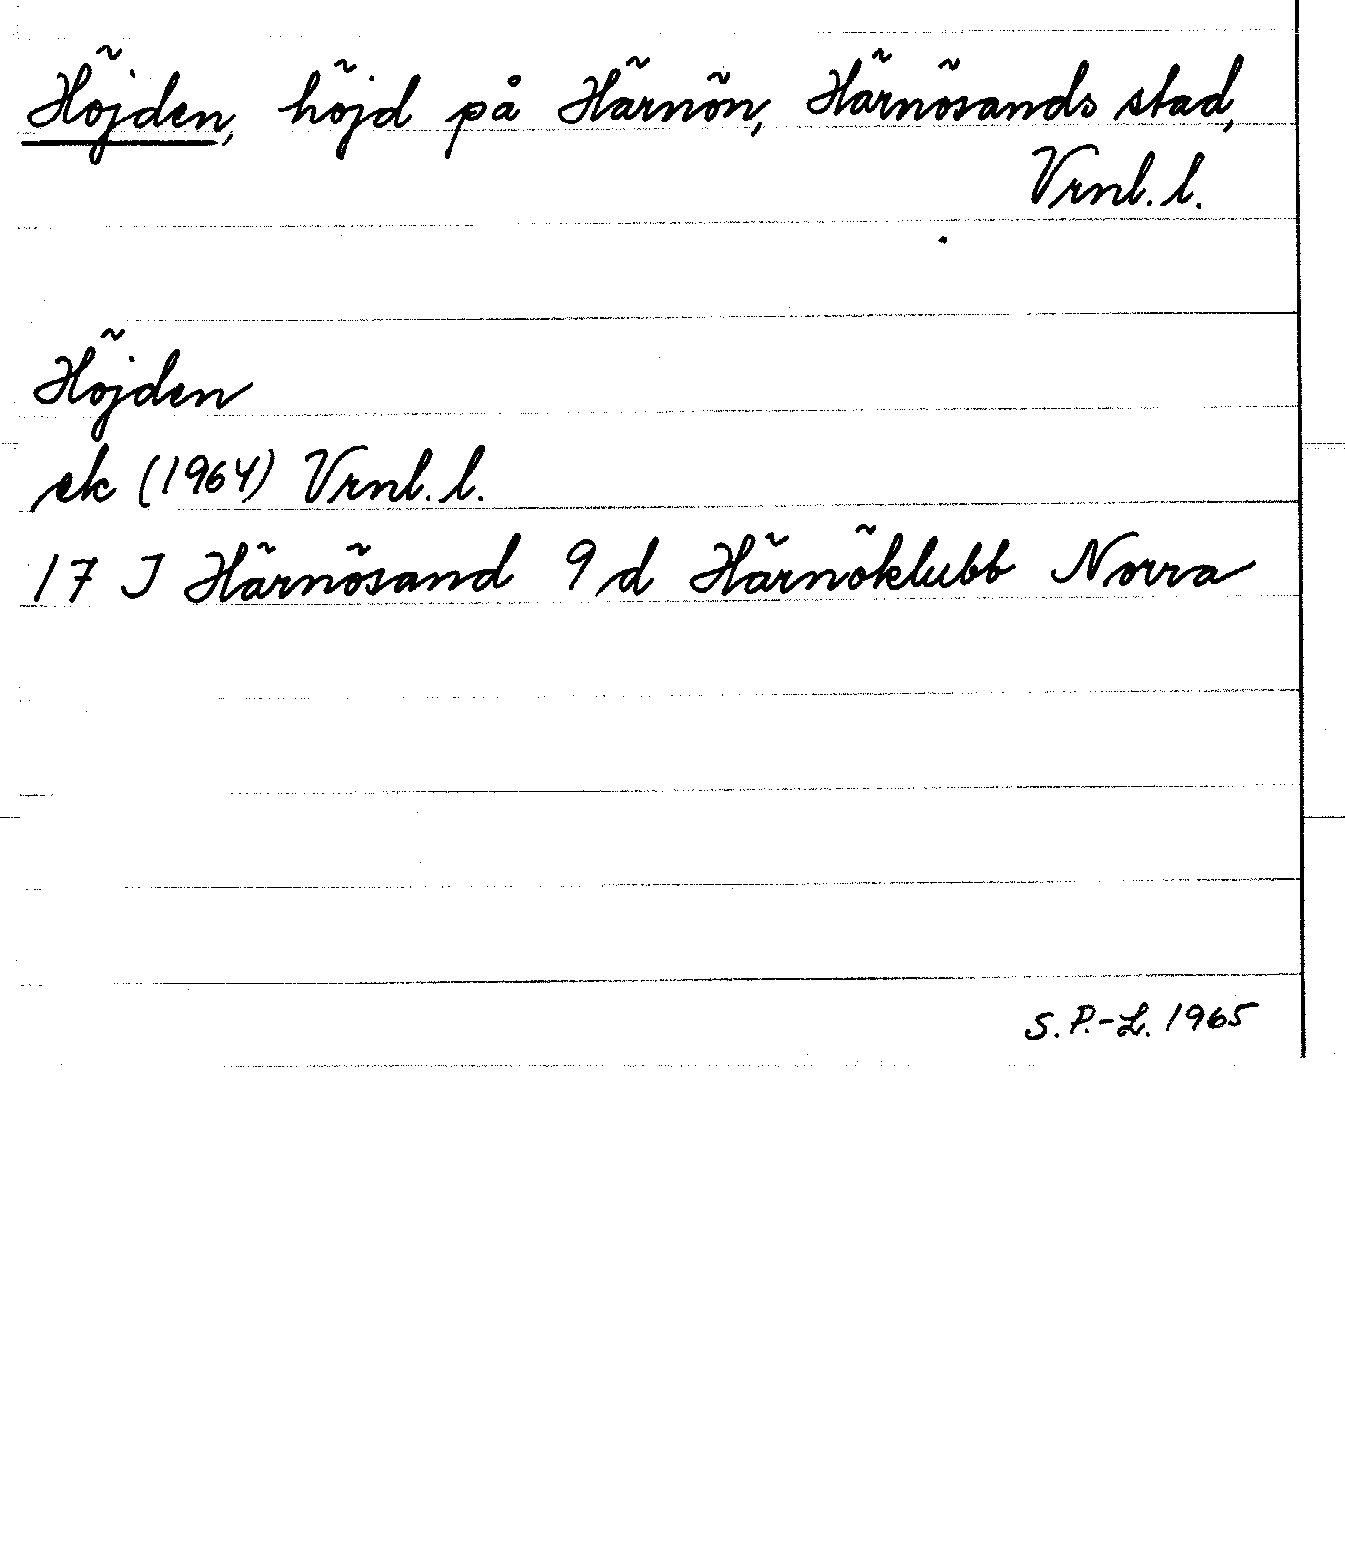 Höjden, höjd på Härnön, Härnösands stad,
Vrnl. l.
Höjden
ek (1964) Vrnl. l.
17 J Härnösand 9 d Härnöklubb Norra
S. P.-L. 1965